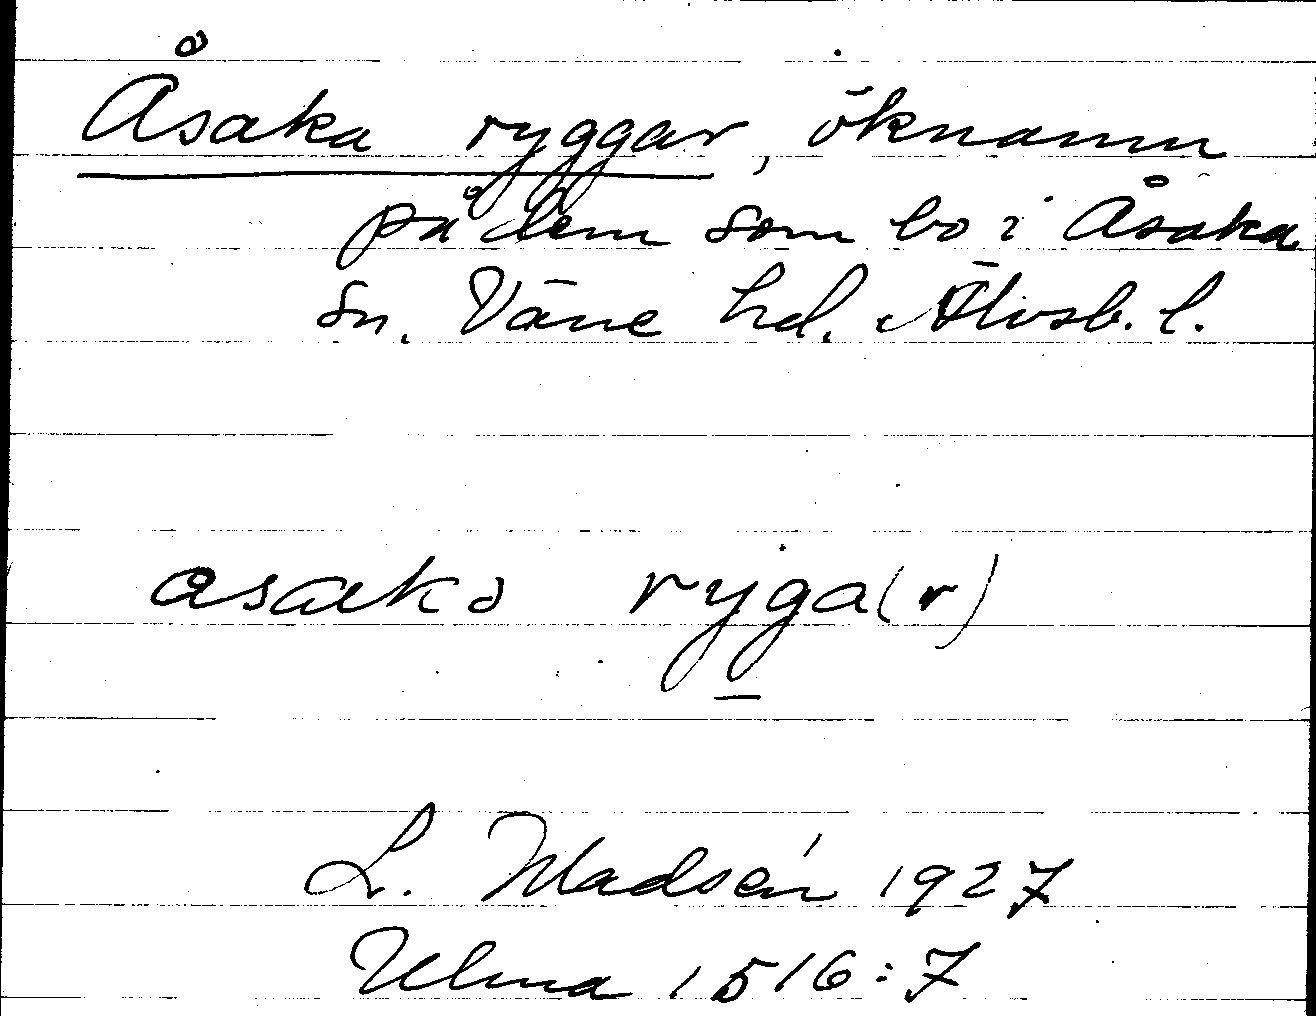 Åsaka ryggar, öknamn
på dem som bo i Åsaka
sn. Väne hd. Älvsb. l.
asakə ryga(r)
L. Madsén 1927
Ulma 1516:7